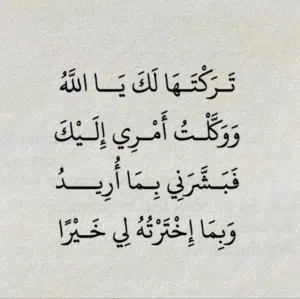 تَرَكْتَهَا لَكَ يَا اللَّهُ
وَوَكَّلْتُ أَمْرِي إِلَيْكَ
فَبَشَّرَنِي بِمَا أُرِيدُ
وَبِمَا إِخْتَرْتُهُ لِي خَيْرًا